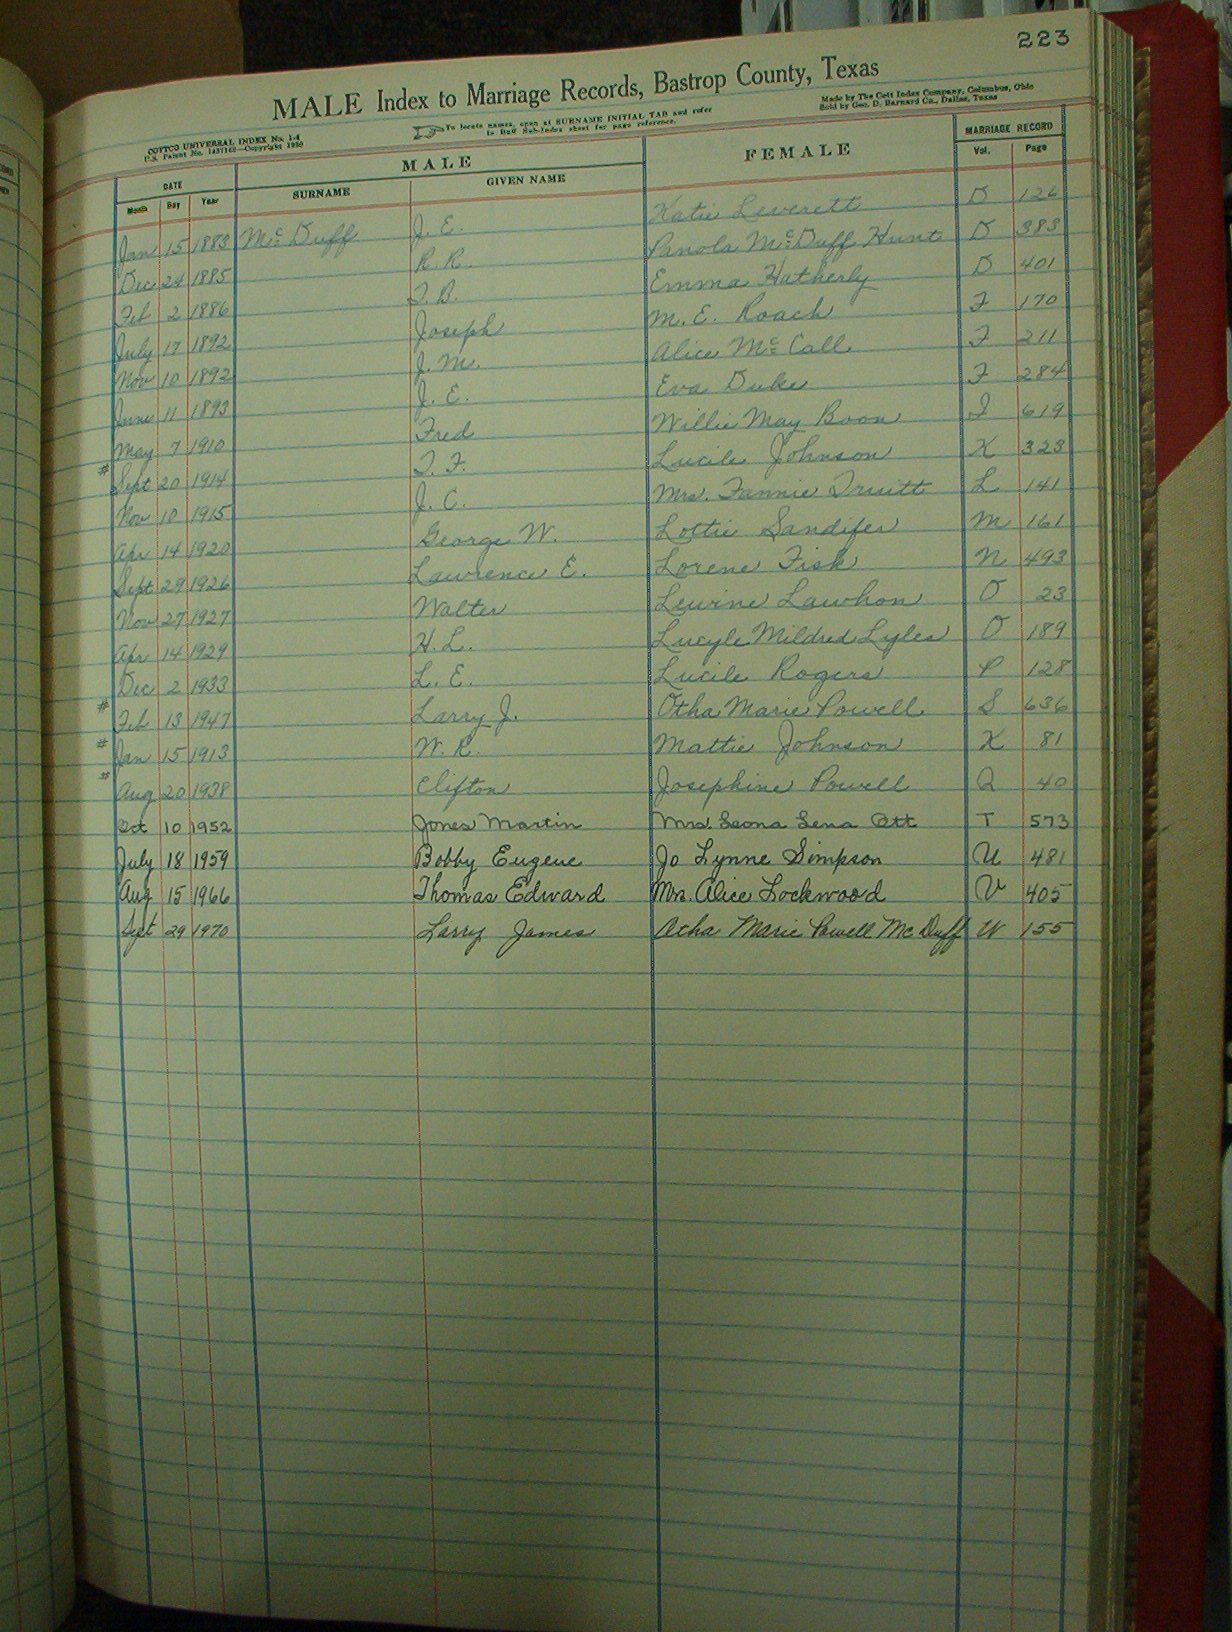 223
MALE Index to Marriage Records, Bastrop County, Texas
COTTCO UNIVERSAL INDEX No. 1-4
U.S. Patent No. Copyright 1930
To locate names, open at SURNAME INITIAL TAB and refer
to Buff Sub-Index sheet for page reference.
Made by The Cott Index Company, Columbus, Ohio
Sold by Geo. D. Barnard Co., Dallas, Texas
DATE MALE FEMALE MARRIAGE RECORD
Month Day Year SURNAME GIVEN NAME Vol. Page
Jan 15 1883 McDuff J. E. Katie Leverett D 126
Dec 24 1885 R. R. Panola McDuff Hunt D 383
Feb 2 1886 T. B. Emma Hatherly D 401
July 17 1892 Joseph M. E. Roach F 170
Nov 10 1892 J. M. Alice McCall F 211
June 11 1893 J. E. Eva Duke F 284
May 7 1910 Fred Willie May Boon I 619
# Sept 20 1914 T. F. Lucile Johnson K 323
Nov 10 1915 J. C. Mrs. Fannie Truitt L 141
Apr 14 1920 George W. Lottie Sandifer M 161
Sept 29 1926 Lawrence E. Lorene Fisk N 493
Nov 27 1927 Walter Lewine Lawhon O 23
Apr 14 1929 H. L. Lucyle Mildred Lyles O 189
Dec 2 1933 L. E. Lucile Rogers P 128
# Feb 13 1947 Larry J. Otha Marie Powell S 636
# Jan 15 1913 W. R. Mattie Johnson K 81
# Aug 20 1938 Clifton Josephine Powell Q 40
Oct 10 1952 Jones Martin Mrs. Leona Lena Ott T 573
July 18 1959 Bobby Eugene Jo Lynne Simpson U 481
Aug 15 1966 Thomas Edward Mrs. Alice Lockwood V 405
Sept 29 1970 Larry James Atha Marie Powell McDuff W 155